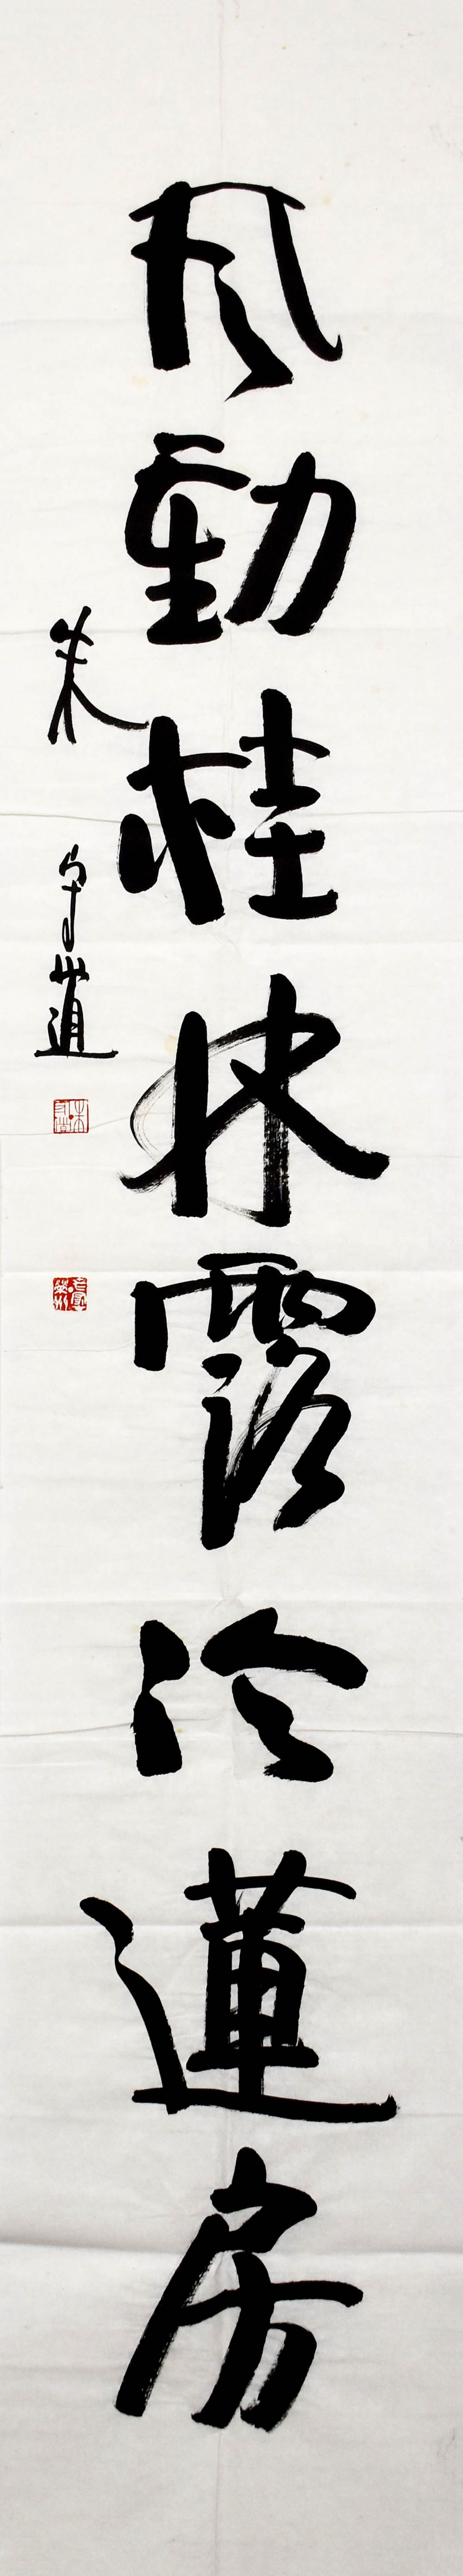 風動桂林露冷蓮房
朱